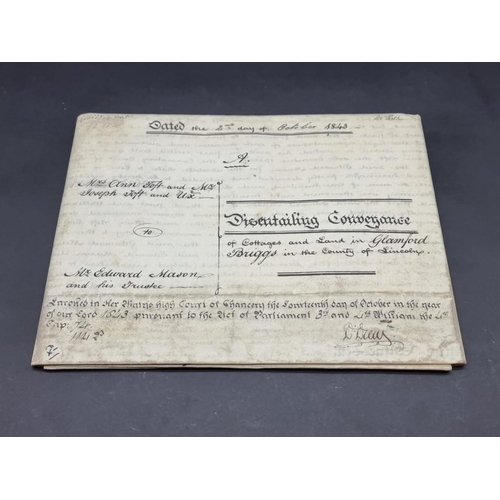 Dated the 2nd day of October 1843
A.
Mrs Ann Toft and Mr
Joseph Toft and Ux.
to
Mr Edward Mason
and his Trustee
Disentailing Conveyance
of Cottages and Land in Glamford
Briggs in the County of Lincoln.
Inrolled in Her Majty's High Court of Chancery the fourteenth day of October in the year
of our Lord 1843 pursuant to the Act of Parliament 3d and 4th William the 4th
Cap. 74